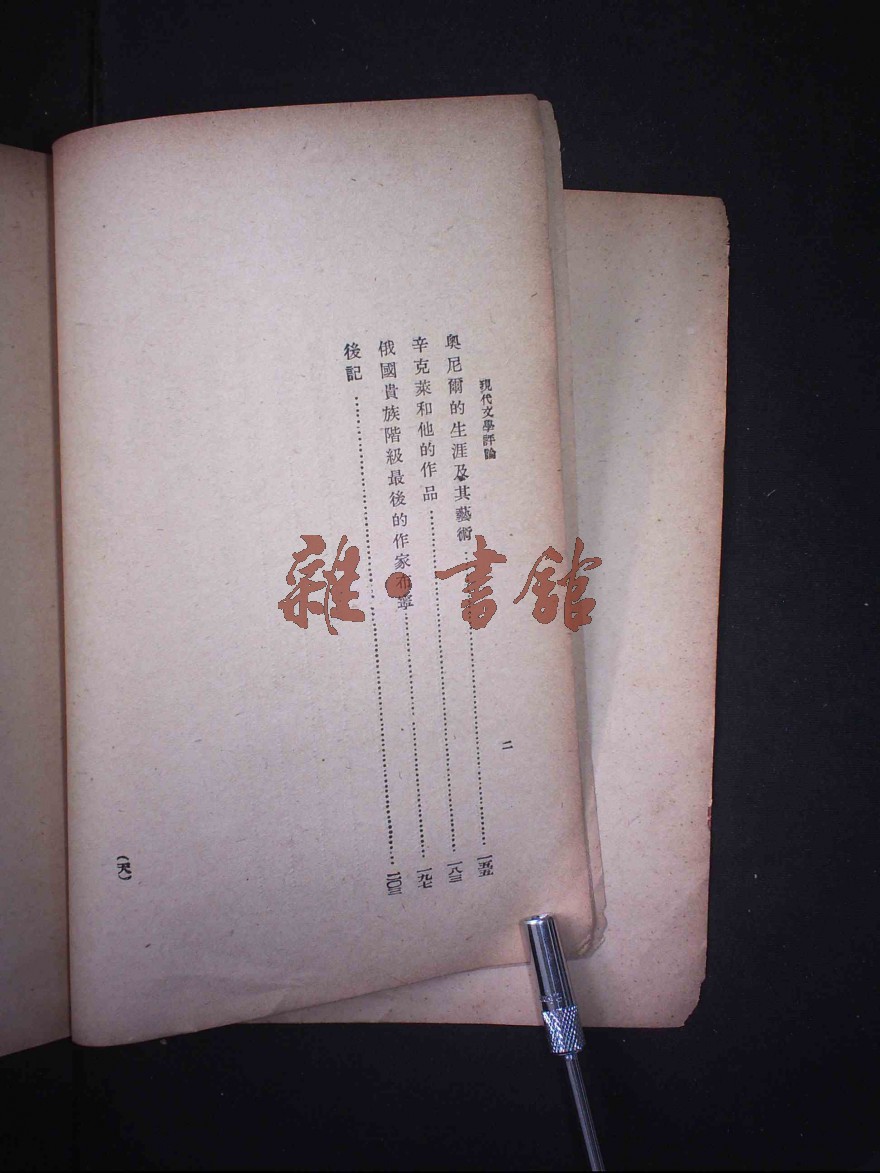 現代文學評論
二
奧尼爾的生涯及其藝術 一五五
辛克萊和他的作品 一八三
俄國貴族階級最後的作家布寧 一九七
後記 二〇三
(天)
雜·書館